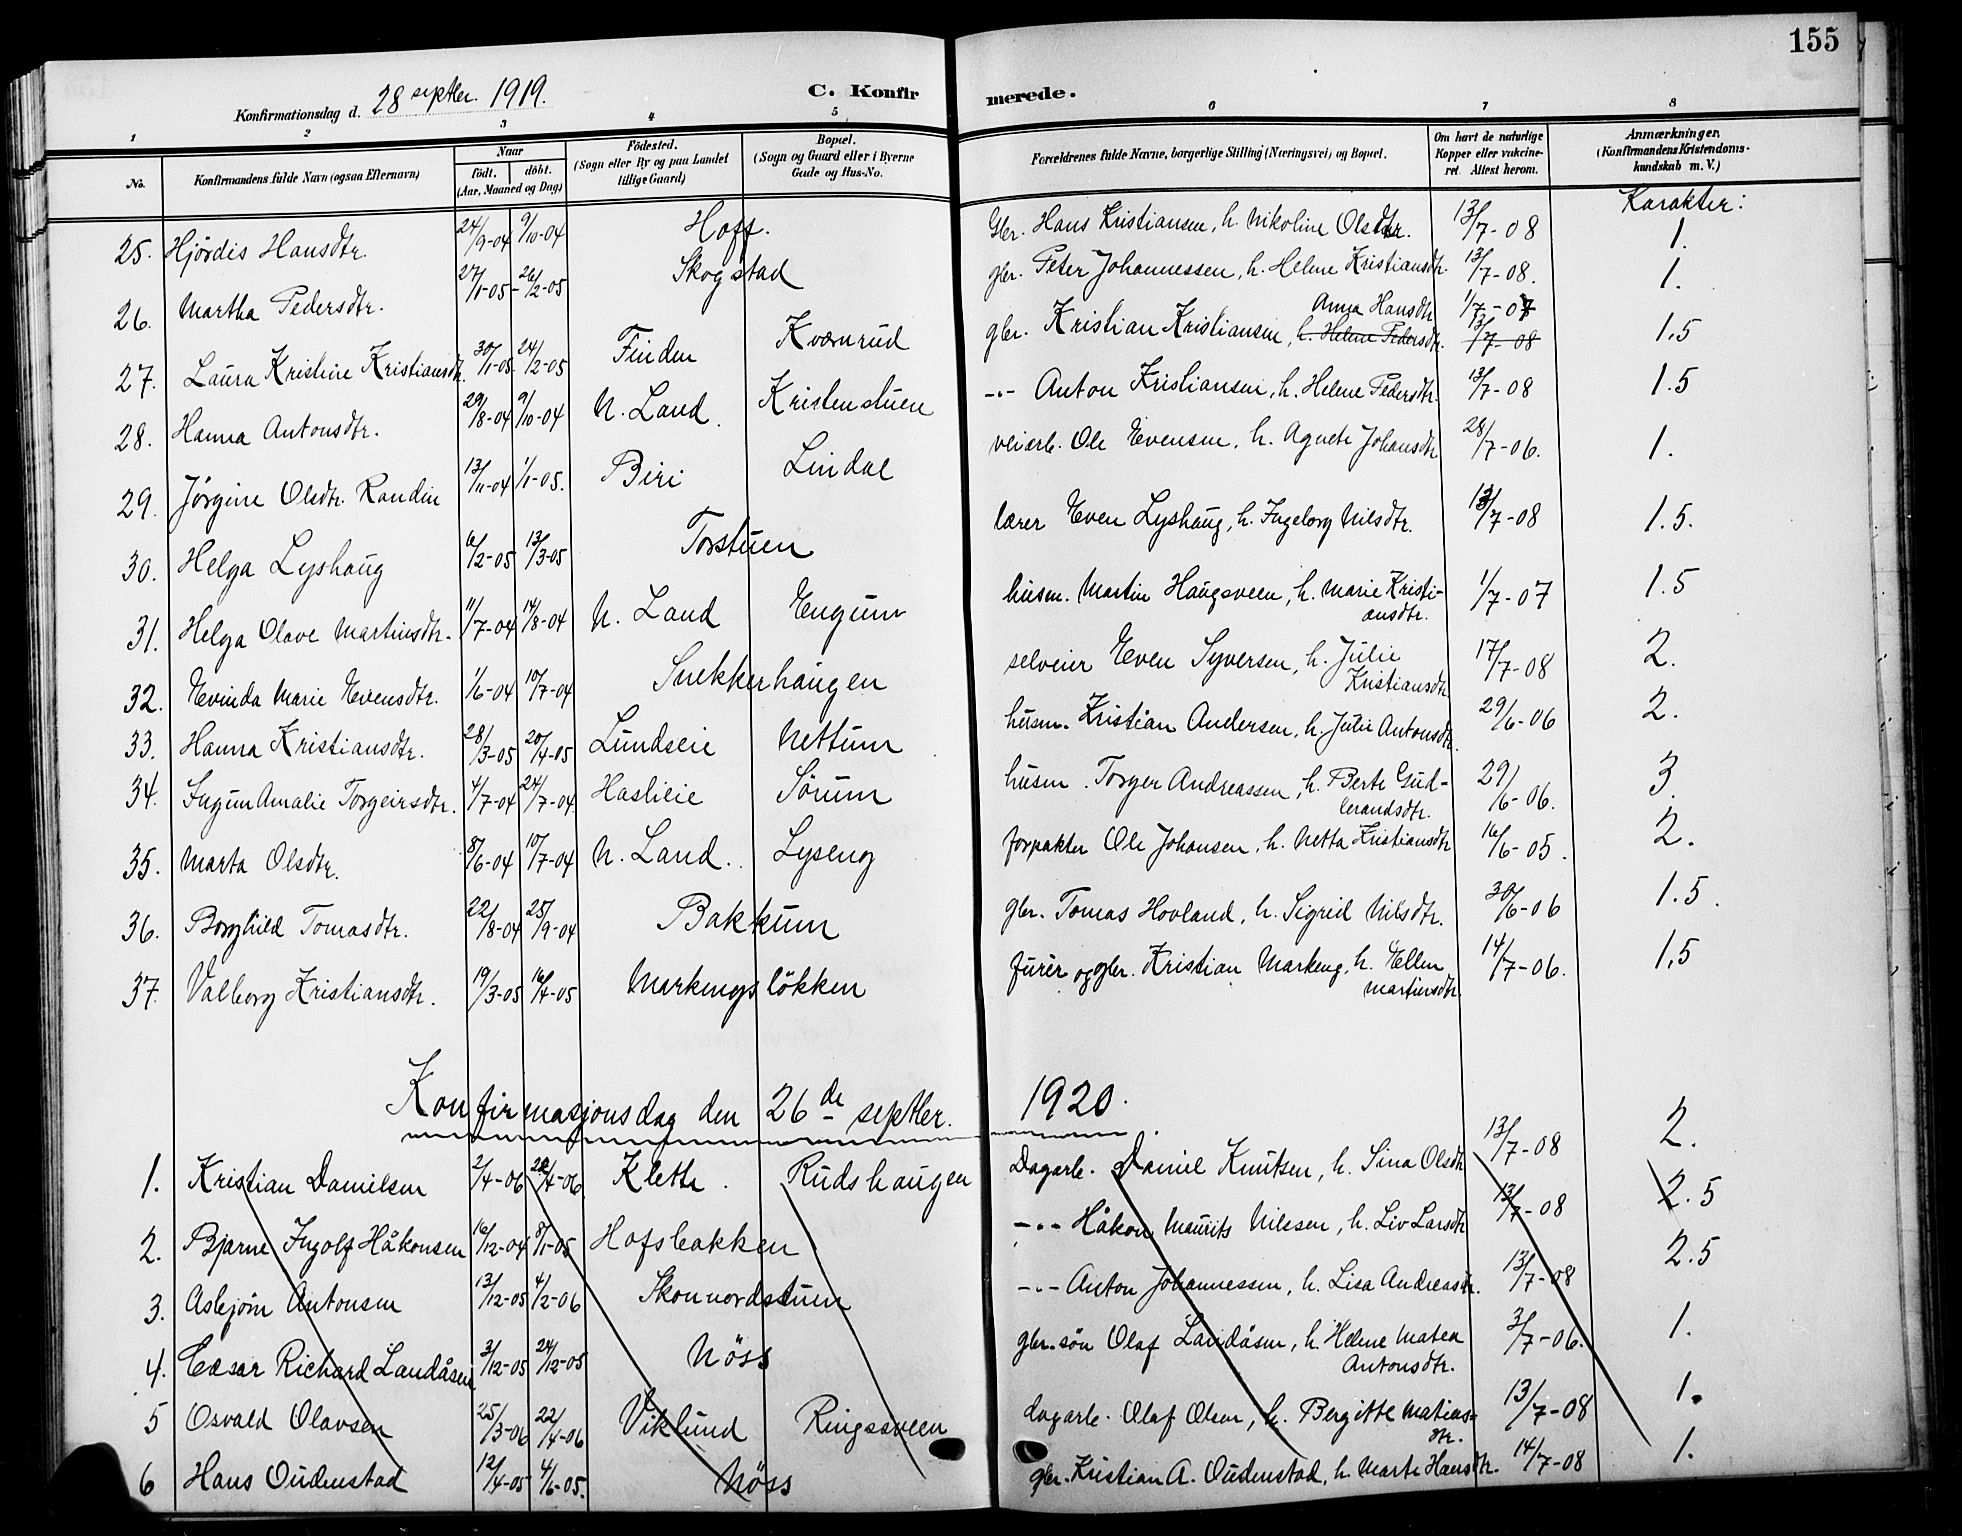 155
Konfirmationsdag d. 28 septber. 1919. C. Konfirmerede.
1 2 3 4 5 6 7 8
No. Konfirmandens fulde Navn (ogsaa Efternavn) Naar født. døbt. (Aar, Maaned og Dag) Fødested. (Sogn eller By og paa Landet tillige Gaard) Bopæl. (Sogn og Gaard eller i Byerne Gade og Hus-No. Forældrenes fulde Navne, borgerlige Stilling (Næringsvei) og Bopæl. Om havt de naturlige Kopper eller vakcineret Attest herom. Anmærkninger. (Konfirmandens Kristendomskundskab m. V.)
Karakter:
25. Hjördis Hansdtr. 24/9-04 9/10-04 Hoff. Gbr. Hans Kristiansen, h. Nikoline Olsdtr. 13/7-08 1.
26. Martha Pedersdtr. 27/1-05- 26/2-05 Skogstad gbr. Peter Johannessen, h. Helene Kristiansdtr. 13/7-08. 1.
27. Laura Kristine Kristiansdtr. 30/1-05. 24/2-05 Finden Kværnrud gbr. Kristian Kristiansen, h. Helene Pedersdtr. Anna Hansdtr 1/7-07 13/7-08 1.5
28. Hanna Antonsdtr. 29/8-04 9/10-04 N. Land. Kristenstuen -"- Anton Kristiansen, h. Helene Pedersdtr. 13/7-08 1.5
29. Jörgine Olsdtr. Randin 13/11-04 1/1-05. Biri Lindal veiarb. Ole Evensen, h. Agnete Johansdtr 28/7-06. 1.
30. Helga Lyshaug 6/2-05 13/3-05 Torstuen lærer Even Lyshaug, h. Ingeborg Nilsdtr. 13/7-08 1.5.
31. Helga Olave Martinsdtr. 11/7-04 14/8-04 N. Land Engum husm. Martin Haugsveen, h. Marie Kristiansdtr. 1/7-07 1.5
32. Evinda Marie Evensdtr. 1/6-04 10/7-04 Snekkerhaugen selveier Even Syversen, h. Julie Kristiansdtr 17/7-08 2.
33. Hanna Kristiansdtr. 28/3-05 20/4-05 Lundseie Nettum husm. Kristian Andersen, h. Julie Antonsdtr. 29/6-06 2.
34. Ingun Amalie Torgeirsdtr. 4/7-04 24/7-04. Haslieie Sörum husm. Torger Andreassen, h. Berte Gudbrandsdtr. 29/6-06. 3.
35. Marta Olsdtr. 8/6-04 10/7-04 N. Land. Lyseng forpakter Ole Johansen, h. Netta Kristiansdtr 16/6-05. 2.
36. Borghild Tomasdtr. 22/8-04 25/9-04 Bakkum gbr. Tomas Hovland, h. Sigrid Nilsdtr. 30/6-06 1.5.
37. Valborg Kristiansdtr. 19/3-05 16/4-05 Markengslökken furér og gbr. Kristian Markeng, h. Ellen Martinsdtr. 14/7-06. 1,5
Konfirmasjonsdag den 26de septber. 1920.
1. Kristian Danielsen 2/4-06 22/4-06 Klette. Rudshaugen Dagarb. Daniel Knutsen, h. Sina Olsdtr 13/7-08 2.
2. Bjarne Ingolf Håkonsen 16/12-04 8/1-05 Hofsbakken -"- Håkon Maurits Nilssen, h. Liv Larsdtr 13/7-08 2.5
3. Asbjörn Antonsen 13/12-05 4/2-06 Skonnordstuen -"- Anton Johannessen, h. Lisa Andreasdtr. 13/7-08 2.5
4. Cæsar Richard Landåsen 3/12-05 24/12-05 Nöss gbr. sön Olaf Landåsen, h. Helene Matea Antonsdtr. 3/7-06. 1.
5 Osvald Olavsen 25/3-06 22/4-06 Viklund Ringssveen dagarb. Olaf Olsen, h. Bergitte Matiasdtr. 13/7-08 1.
6 Hans Oudenstad 12/4-05 4/6-05. Nöss gbr. Kristian A. Oudenstad, h. Marte Hansdtr. 14/7-08 1.